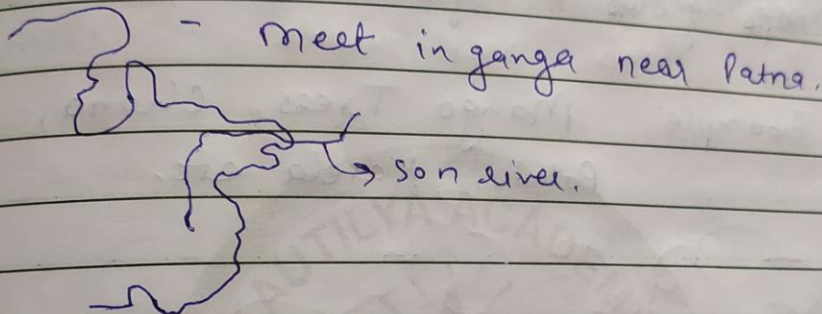 - Meet in ganga near Patna.
→ son river.
KAUTILYA ACADEMY